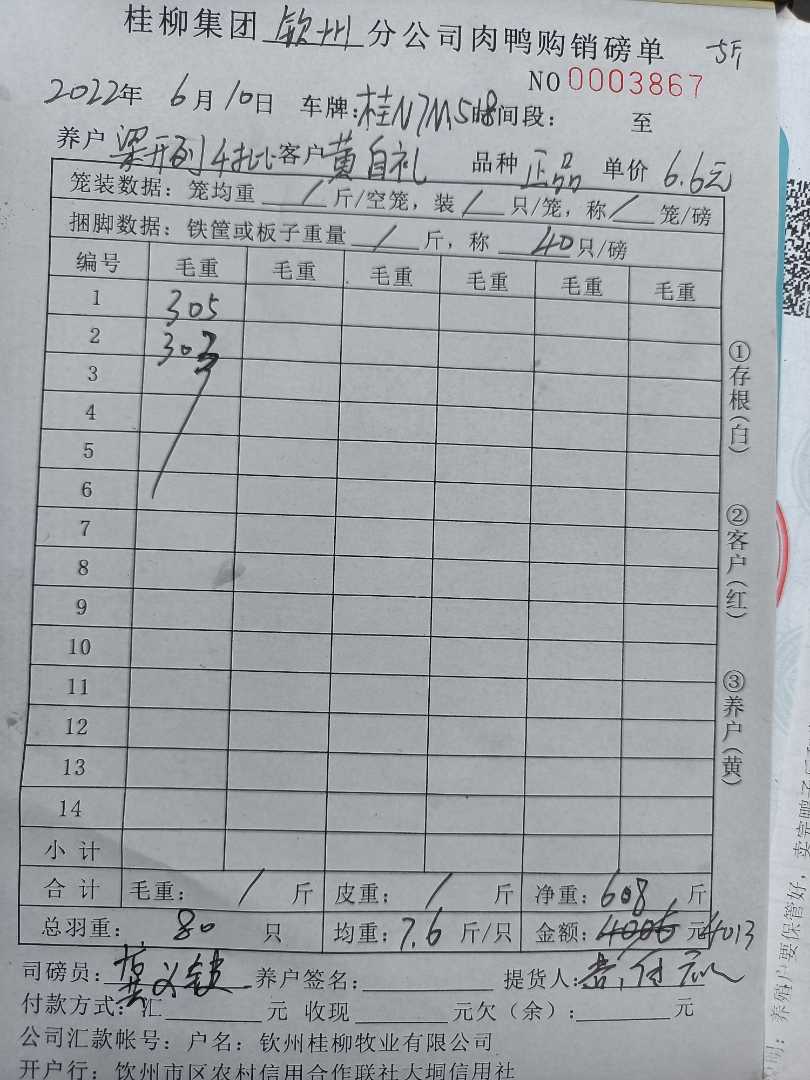 桂柳集团 钦州 分公司肉鸭购销磅单
NO 0003867
2022年 6月10日 车牌: 时间段: 至
养户 4批 客户 黄自礼 品种 正品 单价 6.6元
笼装数据: 笼均重 / 斤/空笼, 装 / 只/笼, 称 / 笼/磅
捆脚数据: 铁筐或板子重量 / 斤, 称 40只/磅
编号 毛重 毛重 毛重 毛重 毛重 毛重
1 305
2 303
3
4
5
6
7
8
9
10
11
12
13
14
小计
合计 毛重: / 斤 皮重: / 斤 净重: 608 斤
总羽重: 80 只 均重: 7.6 斤/只 金额: 元 4013
司磅员: 养户签名: 提货人:
付款方式: 汇 元 收现 元欠(余): 元
公司汇款帐号: 户名: 钦州桂柳牧业有限公司
开户行: 钦州市区农村信用合作联社大垌信用社
①存根(白)
②客户(红)
③养户(黄)
养殖户要保管好,